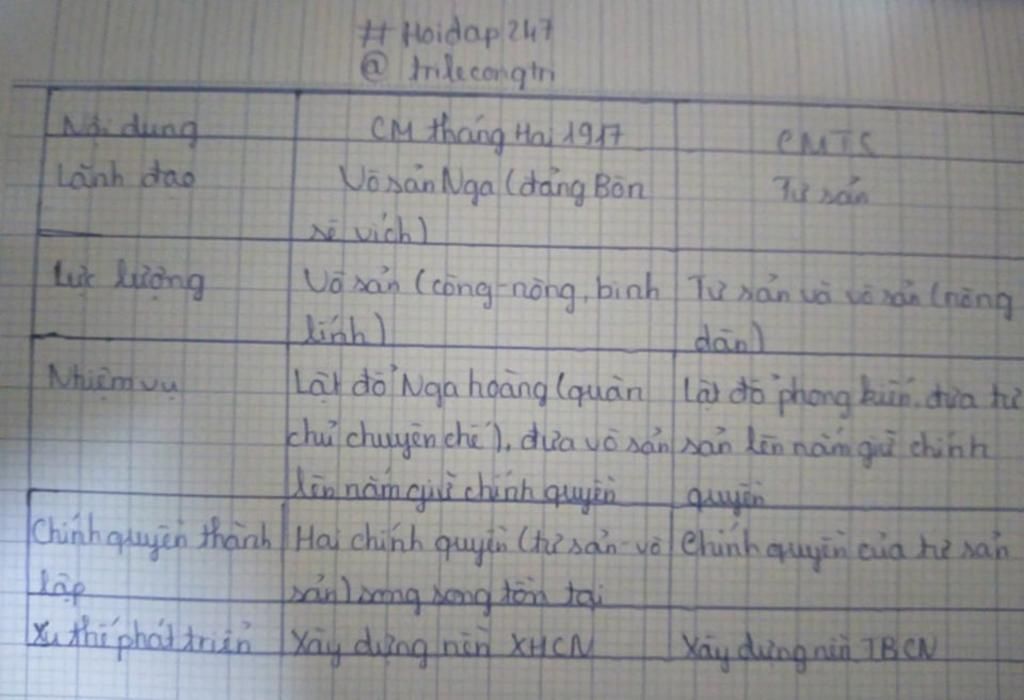 # Hoidap247
@ trilecongtri
Nội dung CM tháng Hai 1917 CMTS
Lãnh đạo Vô sản Nga (đảng Bôn Tư sản
sê vích)
Lực lượng Vô sản (công-nông, binh Tư sản và vô sản (nông
lính) dân)
Nhiệm vụ Lật đổ Nga hoàng (quân Lật đổ phong kiến, đưa tư
chủ chuyên chế), đưa vô sản sản lên nắm giữ chính
lên nắm giữ chính quyền quyền
Chính quyền thành Hai chính quyền (tư sản-vô Chính quyền của tư sản
lập sản) song song tồn tại
Xu thế phát triển Xây dựng nền XHCN Xây dựng nền TBCN